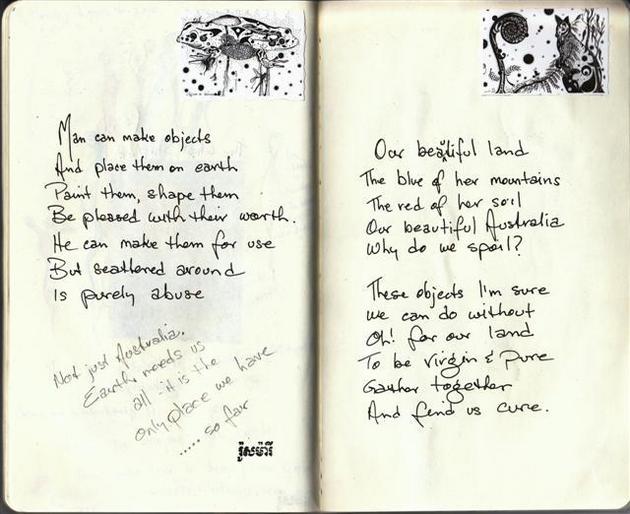 Man can make objects
And place them on earth
Paint them, shape them
Be pleased with their worth.
He can make them for use
But scattered around
Is purely abuse
Not just Australia.
Earth needs us
all - it is the
only place we have
..... so far
រ៉ូសម៉ារី
Our beautiful land
The blue of her mountains
The red of her soil
Our beautiful Australia
Why do we spoil?
These objects I'm sure
we can do without
Oh! for our land
To be virgin & pure
Gather together
And find us cure.